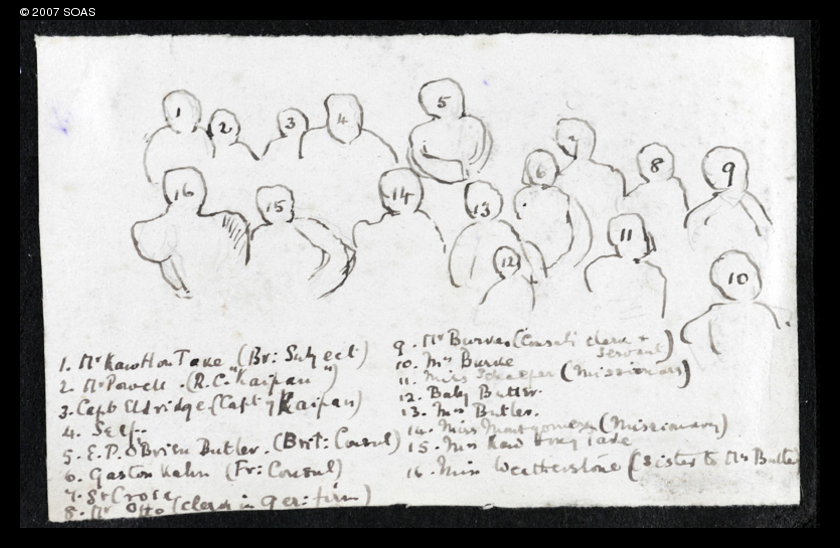 © 2007 SOAS
1 2 3 4 5 7 6 8 9
16 15 14 13 12 11 10
1. Mr Kaw Hon Take (Br: Subject)
2. Mr Powell. (R.C. "Kaipan")
3. Capt Eldridge (Capt of Kaipan)
4. Self.
5. E.P. O'Brien Butler. (Brit: Consul)
6. Gaston Kahn (Fr: Consul)
7. St Croix
8. Mr Otto (clerk in Ger: firm)
9. Mr (Consul's clerk +
servant)
10. Mrs Burke
11. Miss Schaeffer (missionary)
12. Baby Butler.
13. Mrs Butler.
14. Miss Montgomery (Missionary)
15. Mrs Kaw Hong Take
16. Miss Weatherstone (sister to Mrs Butler